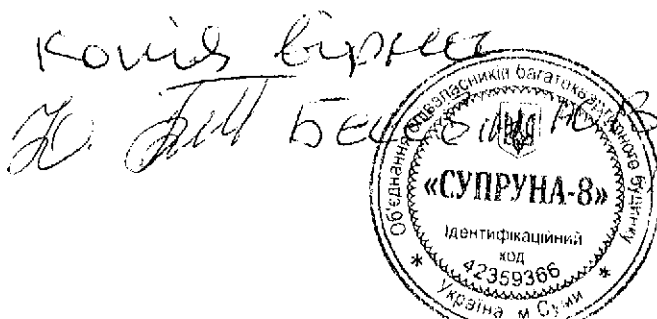 копія вірна
Ю.
Об'єднання співвласників багатоквартирного будинку
«СУПРУНА-8»
Ідентифікаційний
код
42359366
* Україна м Суми *